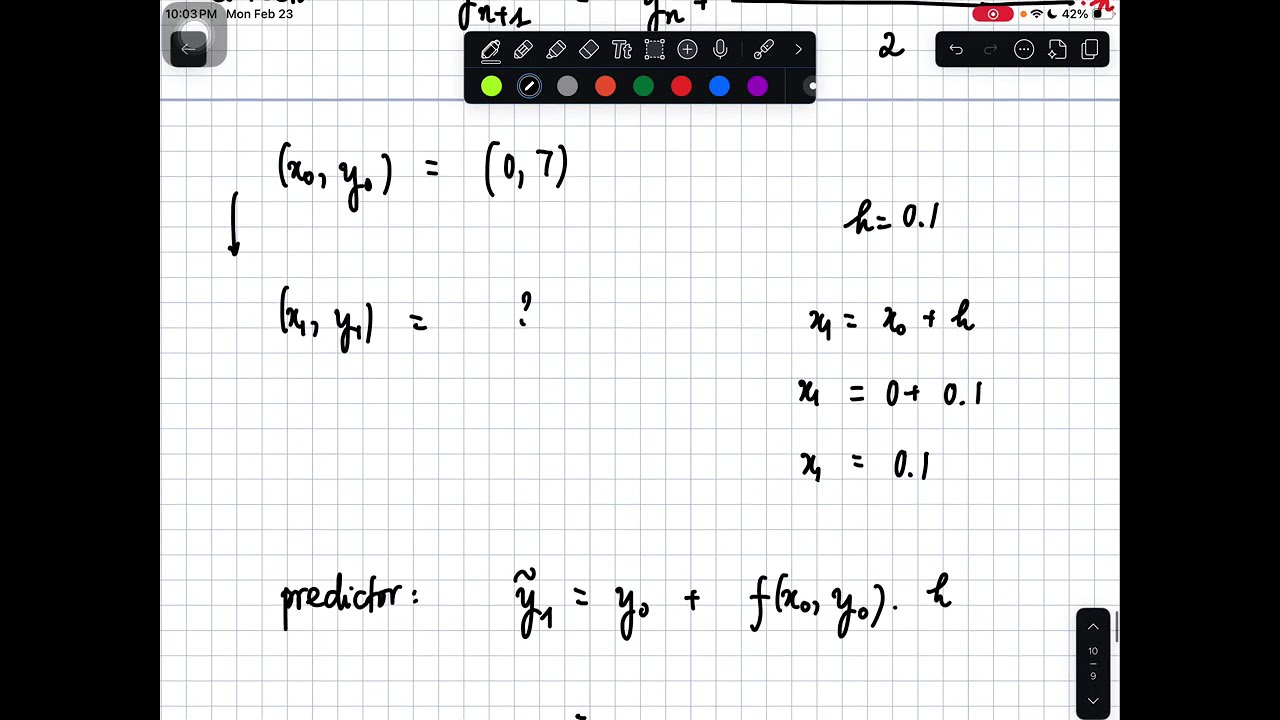 10:03 PM Mon Feb 23
42%
y_{n+1} = y_n +
2
Tt
(x_0, y_0) = (0, 7)
h = 0.1
(x_1, y_1) = ?
x_1 = x_0 + h
x_1 = 0 + 0.1
x_1 = 0.1
predictor: ỹ_1 = y_0 + f(x_0, y_0). h
=
10
9